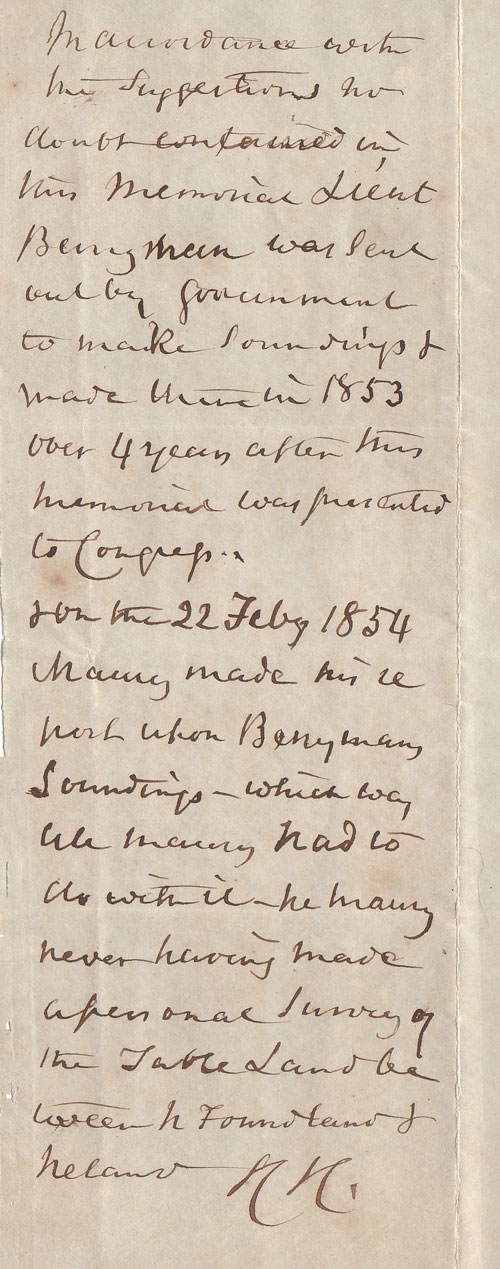 In accordance with
the Suggestions no
doubt contained in
this Memorial Lieut
Berryman was Sent
out by government
to make Soundings &
made them in 1853
over 4 years after this
memorial was presented
to Congress..
& on the 22 Feby 1854
Maury made his re
port upon Berrymans
Soundings - which was
all Maury had to
do with it - he Maury
never having made
a personal Survey of
the Table Land be
tween N Foundland &
Ireland H H.